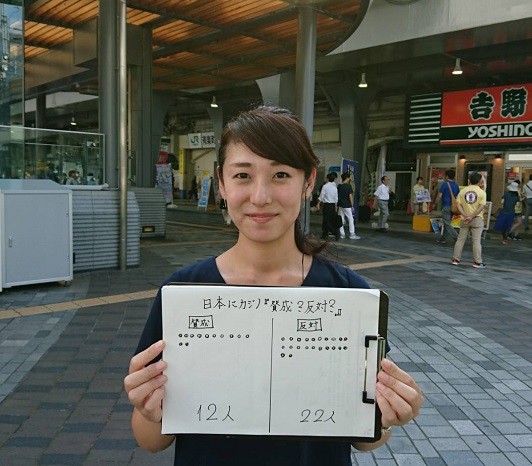 日本にカジノ『賛成?反対?』
賛成
反対
12人
22人
JR 有楽町
吉野
YOSHINO